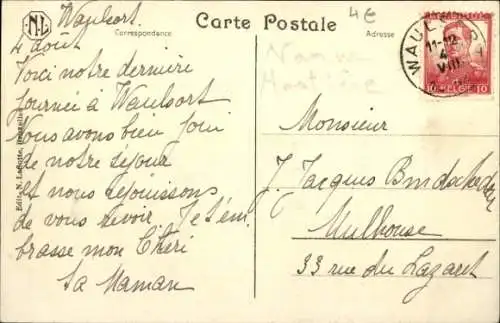 N.L
Carte Postale
Correspondance
Adresse
4 €
Namur
Hastière
WAUL
11-12
4
VIII
10 BELGIE 10
Edit. N. Laflotte, Bruxelles
Waulsort.
4 Août
Voici notre dernière
journée à Waulsort
Nous avons bien joui
de notre séjour
et nous réjouissons
de vous revoir Je t'em
brasse mon Chéri
Ta Maman
Monsieur
J. Jacques
Mulhouse
33 rue du Lazaret